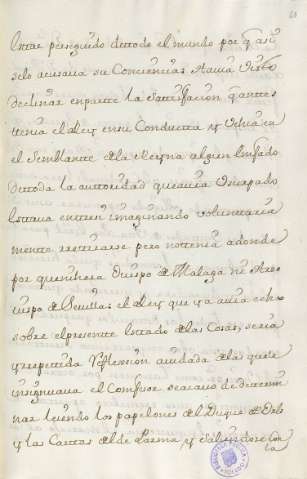 estar perseguido de todo el mundo por q. asi
selo acusaua su Conciencia. Hauia Visto
declinar en parte la Satisfacion q. antes
tenia el Rey en su Conducta y Veia en
el Semblante de la Reyna algun enfado
de toda la autoridad que auia Vsurpado
estaua entre si imaginando voluntaria
mente retirarse pero no tenia adonde
por que ni era Obispo de Malaga ni Arzo
uispo de Seuilla: el Rey que ya auia echo
sobre el presente estado de las Cosas, seria
y repetida reflexion ayudada de las que le
insignuaua el Confesor se acauo de determi
nar leiendo los papelones del Duque de
y las Cartas del de Parma, y saliendose con
la